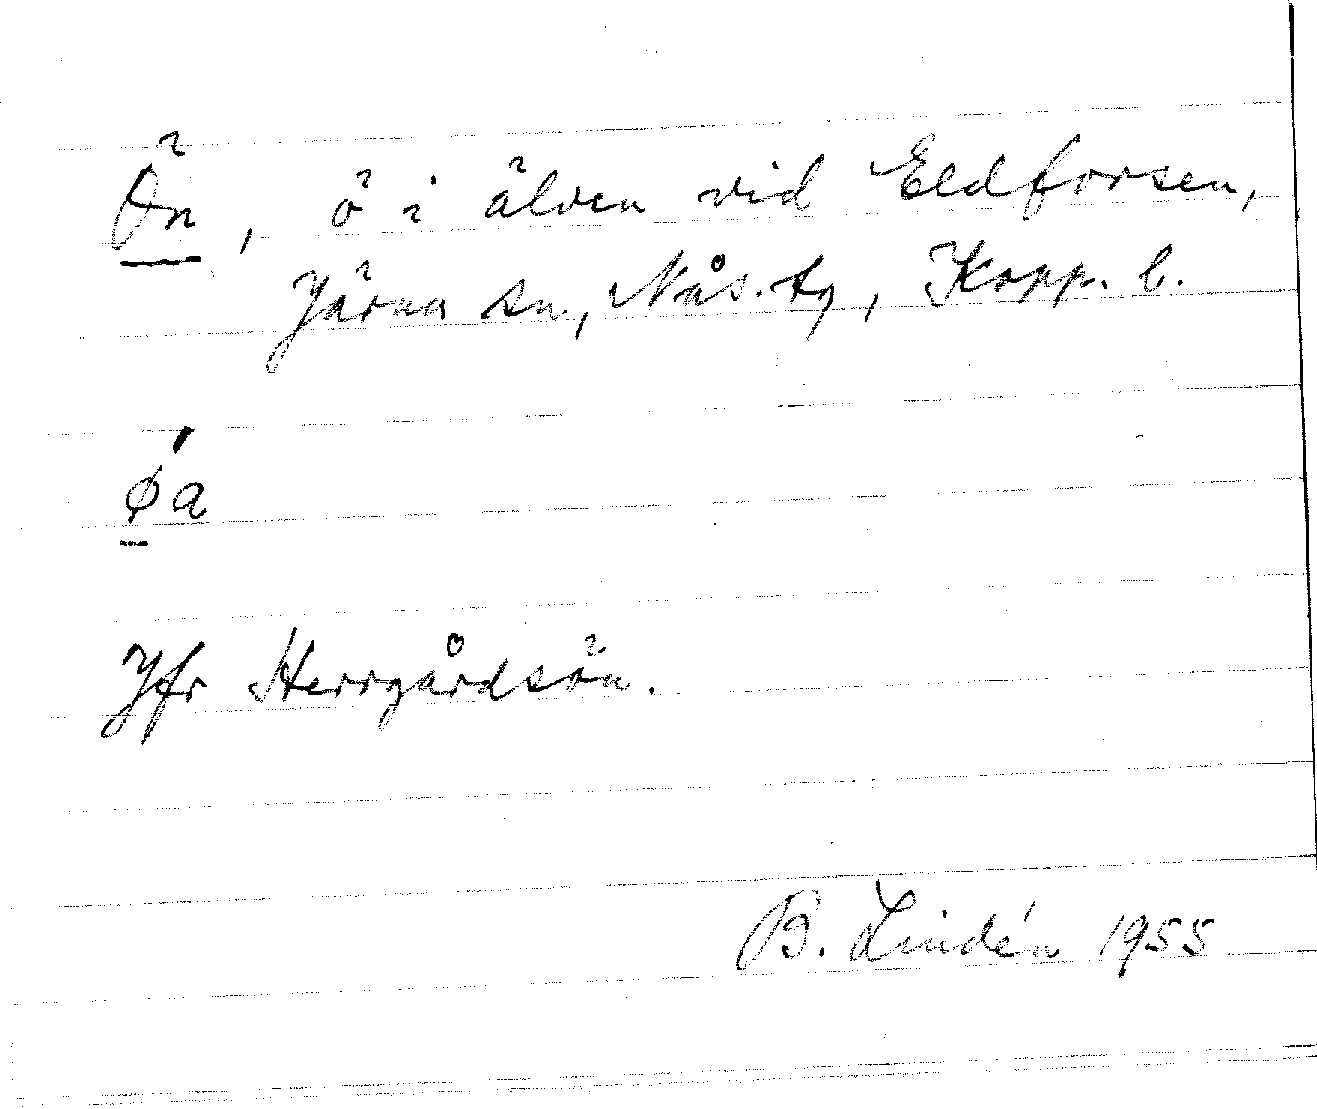 Ön, ö i älven vid Eldforsen,
Järna sn, Nås. tg, Kopp. l.
ǿa
Jfr Herrgårdsön.
B. Lindén 1955